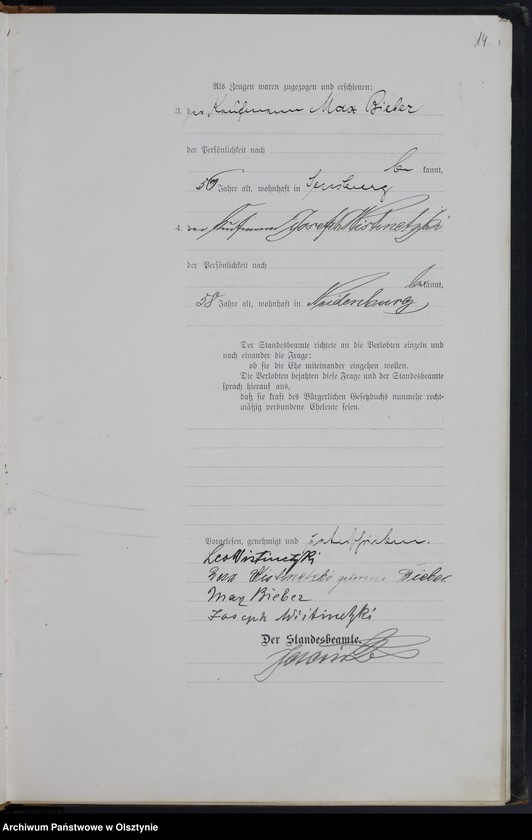 14.
Als Zeugen waren zugezogen und erschienen:
3. der Kaufmann Max Bieber
der Persönlichkeit nach
be kannt,
56 Jahre alt, wohnhaft in Sensburg
4. der Kaufmann Joseph Wistinetzki
der Persönlichkeit nach
be kannt,
58 Jahre alt, wohnhaft in Neidenburg
Der Standesbeamte richtete an die Verlobten einzeln und
nach einander die Frage:
ob sie die Ehe miteinander eingehen wollen.
Die Verlobten bejahten diese Frage und der Standesbeamte
sprach hierauf aus,
daß sie kraft des Bürgerlichen Gesetzbuchs nunmehr recht-
mäßig verbundene Eheleute seien.
Vorgelesen, genehmigt und unterschrieben.
Leo Wistinetzki
Wistinetzki geborene Bieber
Max Bieber
Joseph Wistinetzki
Der Standesbeamte.
Archiwum Państwowe w Olsztynie